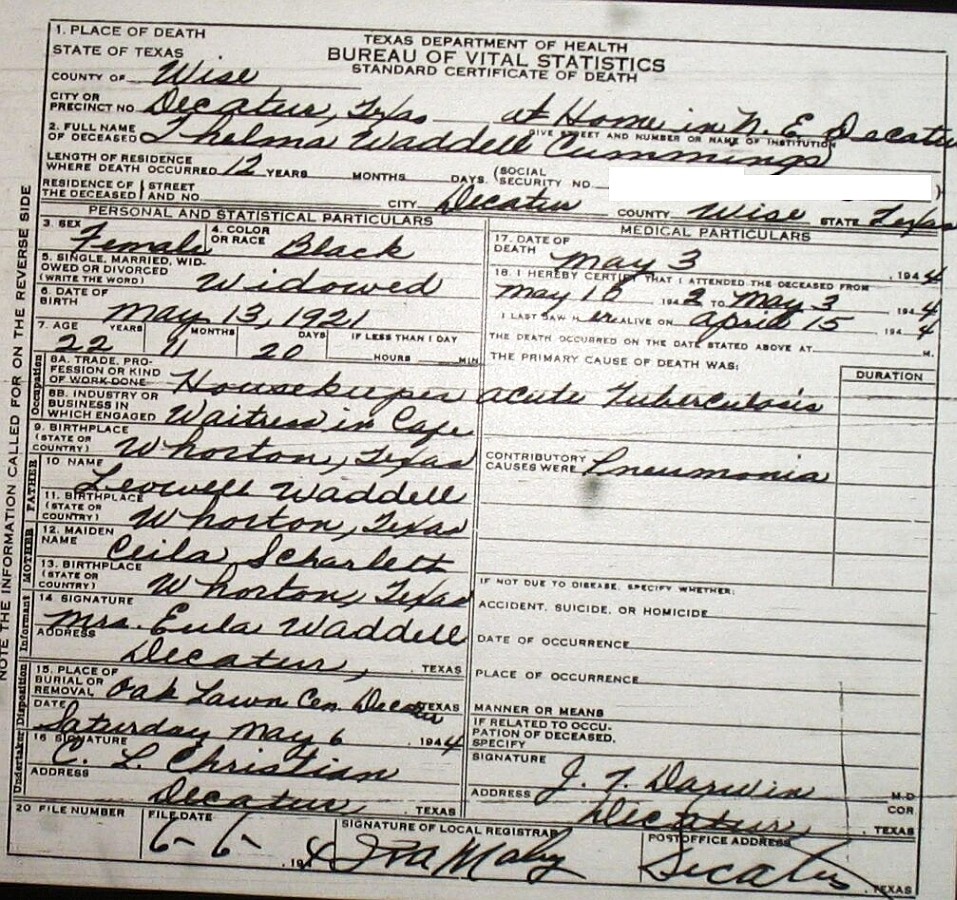 1. PLACE OF DEATH
STATE OF TEXAS
TEXAS DEPARTMENT OF HEALTH
BUREAU OF VITAL STATISTICS
STANDARD CERTIFICATE OF DEATH
COUNTY OF Wise
CITY OR PRECINCT NO. Decatur, Texas at Home in N. E. Decatur
GIVE STREET AND NUMBER OR NAME OF INSTITUTION
2. FULL NAME OF DECEASED Thelma Waddell Cummings
LENGTH OF RESIDENCE WHERE DEATH OCCURRED 12 YEARS MONTHS DAYS. (SOCIAL SECURITY NO. )
RESIDENCE OF THE DECEASED STREET AND NO. CITY Decatur COUNTY Wise STATE Texas
NOTE THE INFORMATION CALLED FOR ON THE REVERSE SIDE
PERSONAL AND STATISTICAL PARTICULARS
3. SEX Female 4. COLOR OR RACE Black
5. SINGLE, MARRIED, WIDOWED OR DIVORCED (WRITE THE WORD) Widowed
6. DATE OF BIRTH May 13, 1921
7. AGE YEARS MONTHS DAYS IF LESS THAN 1 DAY
22 11 20 HOURS MIN.
Occupation
8A. TRADE, PROFESSION OR KIND OF WORK DONE Housekeeper
8B. INDUSTRY OR BUSINESS IN WHICH ENGAGED Waitress in Cafe
9. BIRTHPLACE (STATE OR COUNTRY) Whorton, Texas
FATHER
10 NAME Leowell Waddell
11. BIRTHPLACE (STATE OR COUNTRY) Whorton, Texas
MOTHER
12. MAIDEN NAME Ceila Scharlett
13. BIRTHPLACE (STATE OR COUNTRY) Whorton, Texas
Informant
14 SIGNATURE Mrs. Eula Waddell
ADDRESS Decatur, TEXAS
Disposition
15. PLACE OF BURIAL OR REMOVAL Oak Lawn Cem. Decatur TEXAS
DATE Saturday May 6 , 1944
Undertaker
16 SIGNATURE C. L. Christian
ADDRESS Decatur, TEXAS
MEDICAL PARTICULARS
17. DATE OF DEATH May 3 , 1944
18. I HEREBY CERTIFY THAT I ATTENDED THE DECEASED FROM
May 10 , 1942 TO May 3 , 1944
I LAST SAW H er ALIVE ON April 15 , 1944
THE DEATH OCCURRED ON THE DATE STATED ABOVE AT M.
THE PRIMARY CAUSE OF DEATH WAS: DURATION
acute Tuberculosis
CONTRIBUTORY CAUSES WERE Pneumonia
IF NOT DUE TO DISEASE, SPECIFY WHETHER:
ACCIDENT, SUICIDE, OR HOMICIDE
DATE OF OCCURRENCE
PLACE OF OCCURRENCE
MANNER OR MEANS
IF RELATED TO OCCUPATION OF DECEASED, SPECIFY
SIGNATURE J. T. Darwin M.D
COR
ADDRESS Decatur, TEXAS
20 FILE NUMBER FILE DATE SIGNATURE OF LOCAL REGISTRAR POSTOFFICE ADDRESS
6-6- , 194 Ira Mabry Decatur , TEXAS